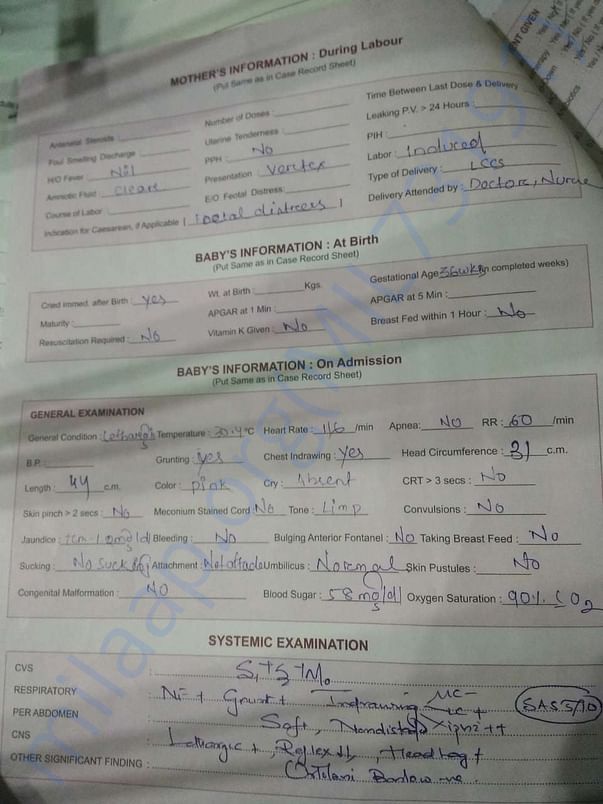 MOTHER'S INFORMATION : During Labour
(Put Same as in Case Record Sheet)
Antenatal Steroids : Number of Doses : Time Between Last Dose & Delivery
Foul Smelling Discharge : Uterine Tenderness : Leaking P.V. > 24 Hours :
H/O Fever : Nil PPH : No PIH :
Amniotic Fluid : Cleare Presentation : Vertex Labor : Induced
Course of Labor : E/O Foetal Distress: Type of Delivery : LCCS
Indication for Caesarean, if Applicable ( foetal distress ) Delivery Attended by : Doctors, Nurse
BABY'S INFORMATION : At Birth
(Put Same as in Case Record Sheet)
Cried immed. after Birth : yes Wt. at Birth : Kgs. Gestational Age 36wks (in completed weeks)
Maturity : APGAR at 1 Min : APGAR at 5 Min :
Resuscitation Required : No Vitamin K Given : No Breast Fed within 1 Hour : No
BABY'S INFORMATION : On Admission
(Put Same as in Case Record Sheet)
GENERAL EXAMINATION
General Condition : Temperature : °C Heart Rate : 116 /min Apnea: NO RR : 60 /min
B.P. Grunting : yes Chest Indrawing : yes Head Circumference : 31 c.m.
Length : 44 c.m. Color : pink Cry : Absent CRT > 3 secs : NO
Skin pinch > 2 secs : No Meconium Stained Cord : No Tone : Limp Convulsions : NO
Jaundice : Bleeding : NO Bulging Anterior Fontanel : No Taking Breast Feed : No
Sucking : No sucking Attachment : Umbilicus : Normal Skin Pustules : No
Congenital Malformation : NO Blood Sugar : 58 mg/dl Oxygen Saturation : 90%
SYSTEMIC EXAMINATION
CVS : S1+S2+M0
RESPIRATORY : Grunt + Indrawing SAS 5/10
PER ABDOMEN : Soft, Xiphi ++
CNS : Lethargic +, Reflex, Head lag +
OTHER SIGNIFICANT FINDING : Ortolani Barlow -ve